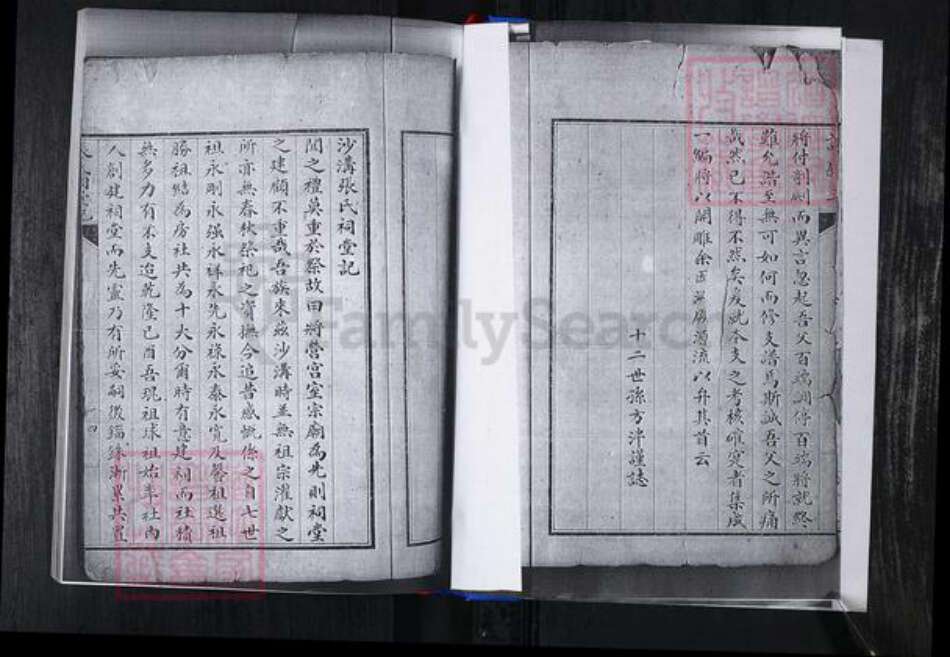 將付剞劂而異言忽起吾父百端調停百端將就終
難允諧至無可如何而修支譜焉斯誠吾父之所痛
哉然已不得不然矣爰就本支之考核確鑿者集成
一編將以開雕余因無慮溯流以升其首云
十二世孫方泮謹誌
沙溝張氏祠堂記
聞之禮莫重於祭故曰將營宮室宗廟為先則祠堂
之建顧不重哉吾族來茲沙溝時並無祖宗灌獻之
所亦無春秋祭祀之資撫今追昔感慨係之自七世
祖永剛永强永祥永先永祿永泰永寬及馨祖選祖
勝祖結為房社共為十大分爾時有意建祠而社積
無多力有不支迨乾隆己酉吾琨祖球祖始率社內
人創建祠堂而先靈乃有所妥嗣後錙銖漸累共置
FamilySearch